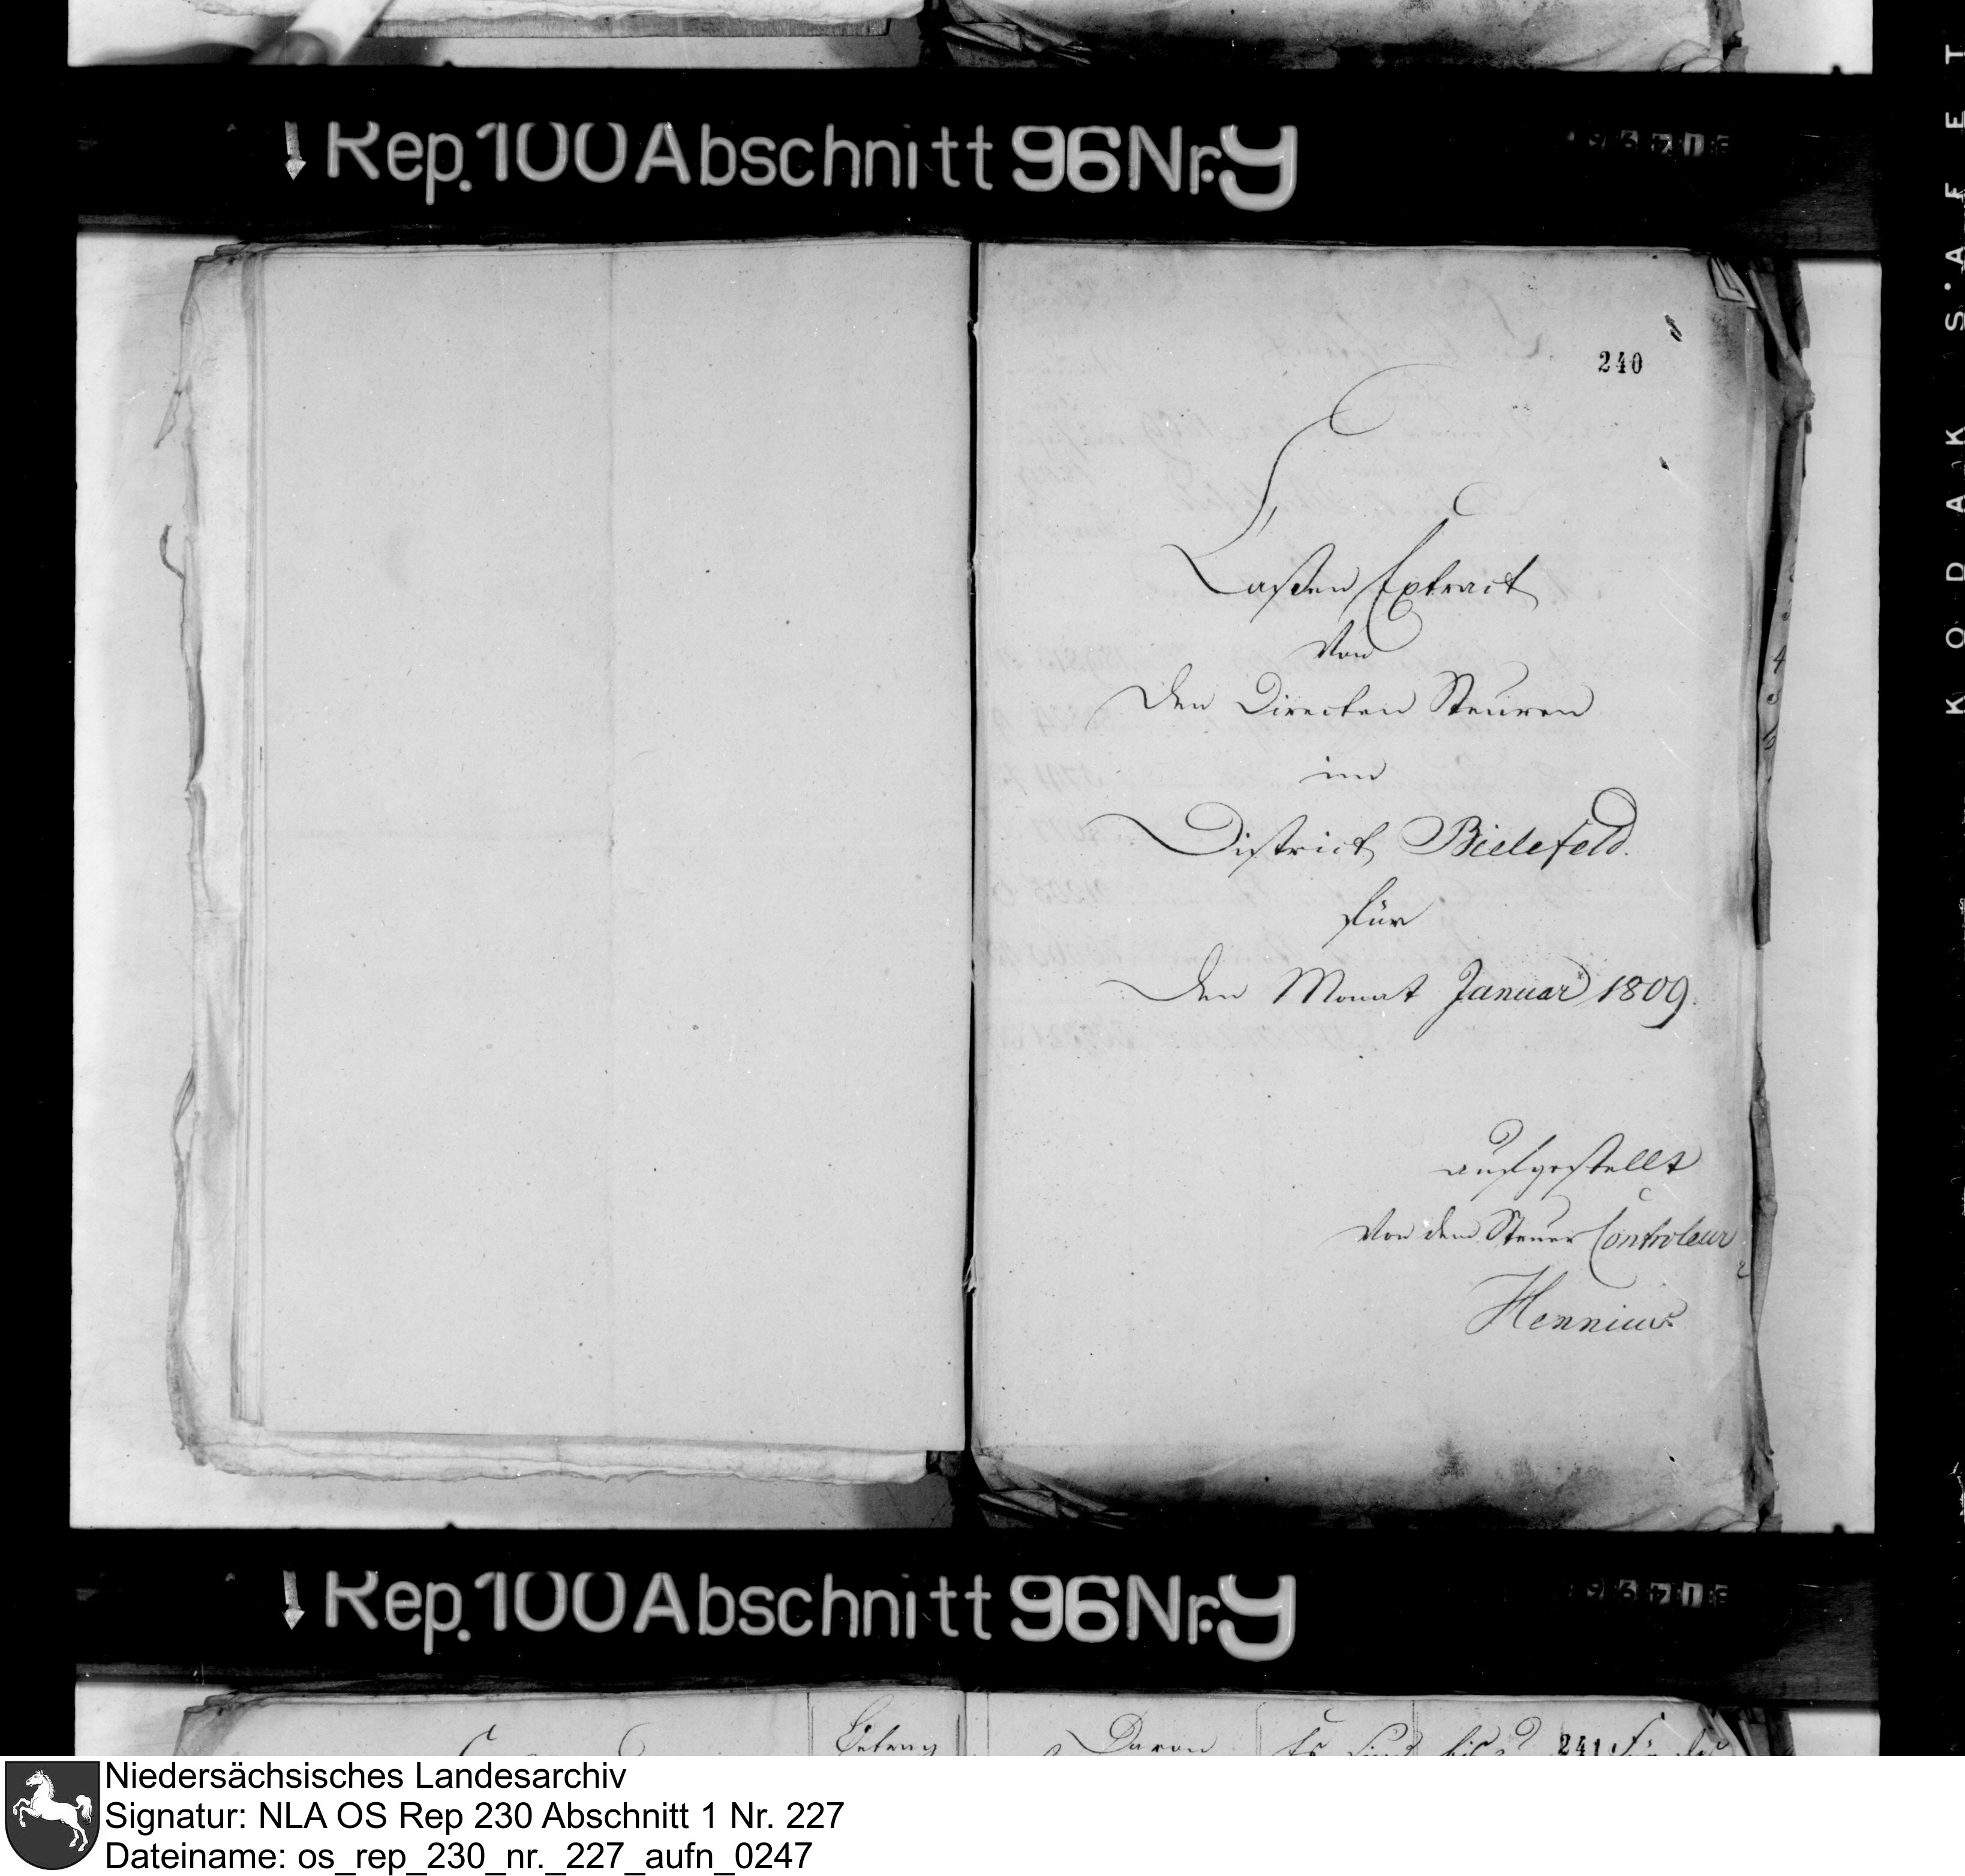 Rep. 100 Abschnitt 96 Nr. 9
240
Cassen Extract
Von
den Directen Steuren
im
District Bielefeld.
für
den Monat Januar 1809.
aufgestellt
Von dem Steuer Controleur
Hennius
Rep. 100 Abschnitt 96 Nr. 9
Betrag
Davon
241
KODAK SAFET
Niedersächsisches Landesarchiv
Signatur: NLA OS Rep 230 Abschnitt 1 Nr. 227
Dateiname: os_rep_230_nr._227_aufn_0247